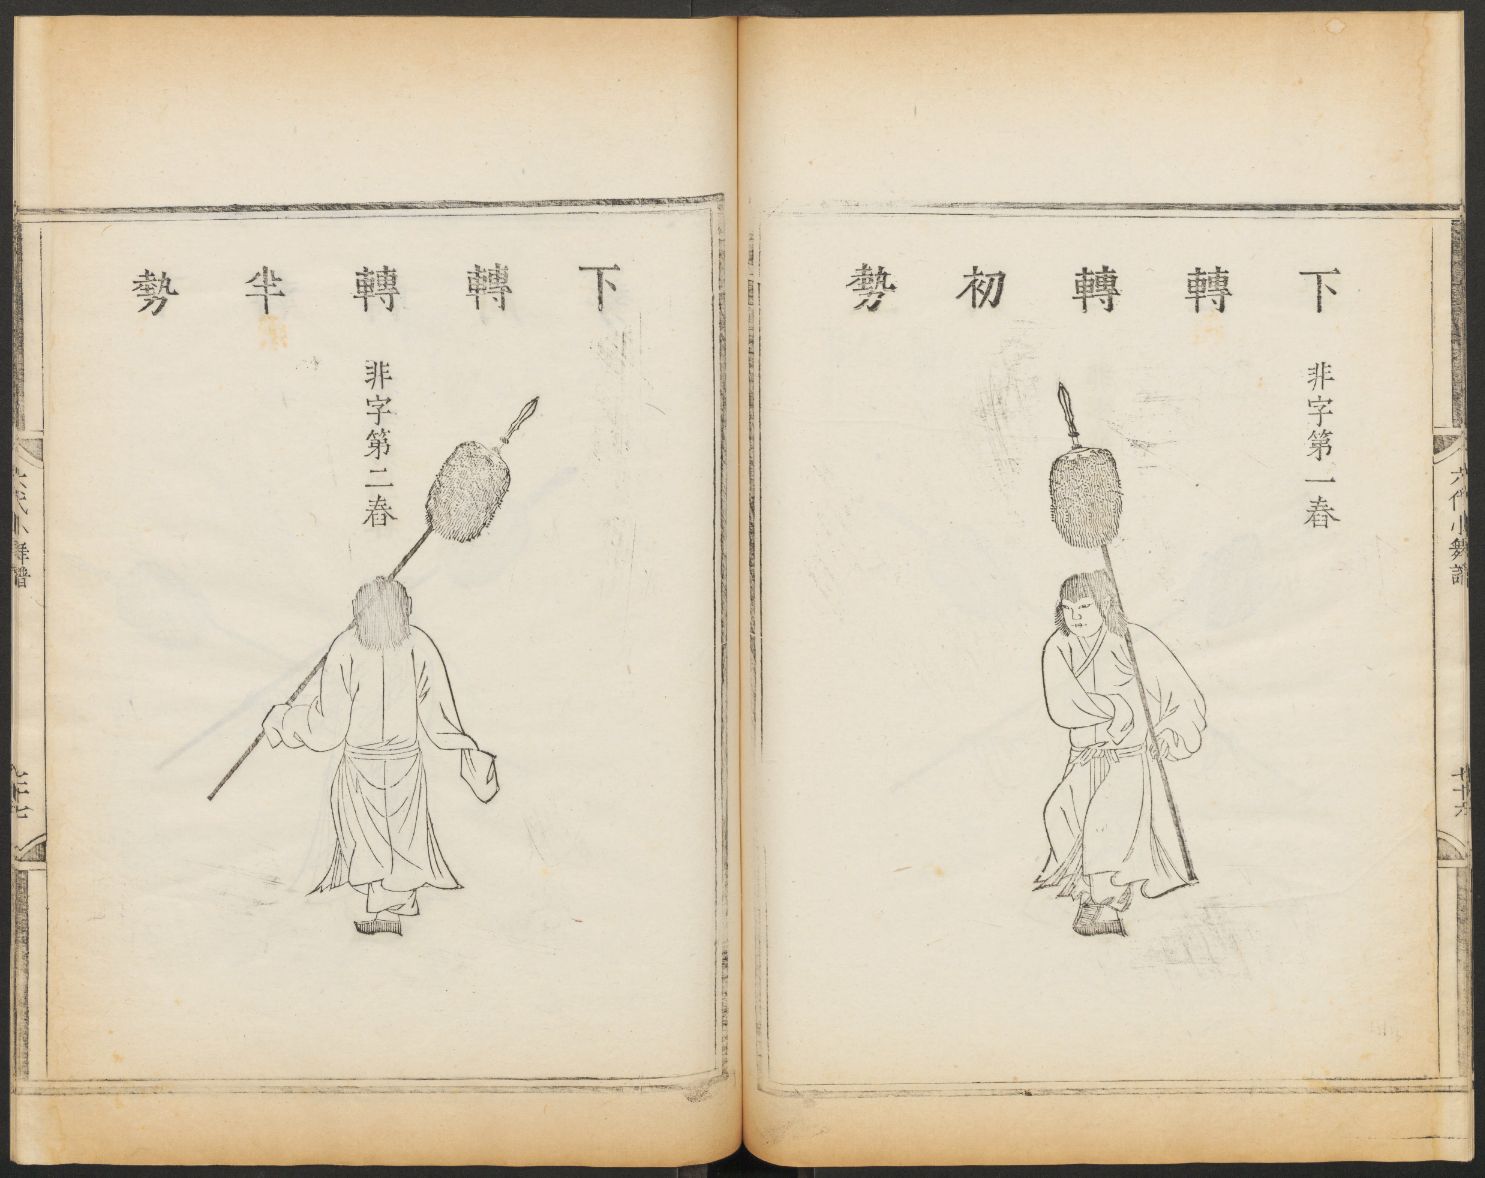 下轉轉初勢
非字第一舂
六代小舞譜
下轉轉半勢
非字第二舂
六代小舞譜